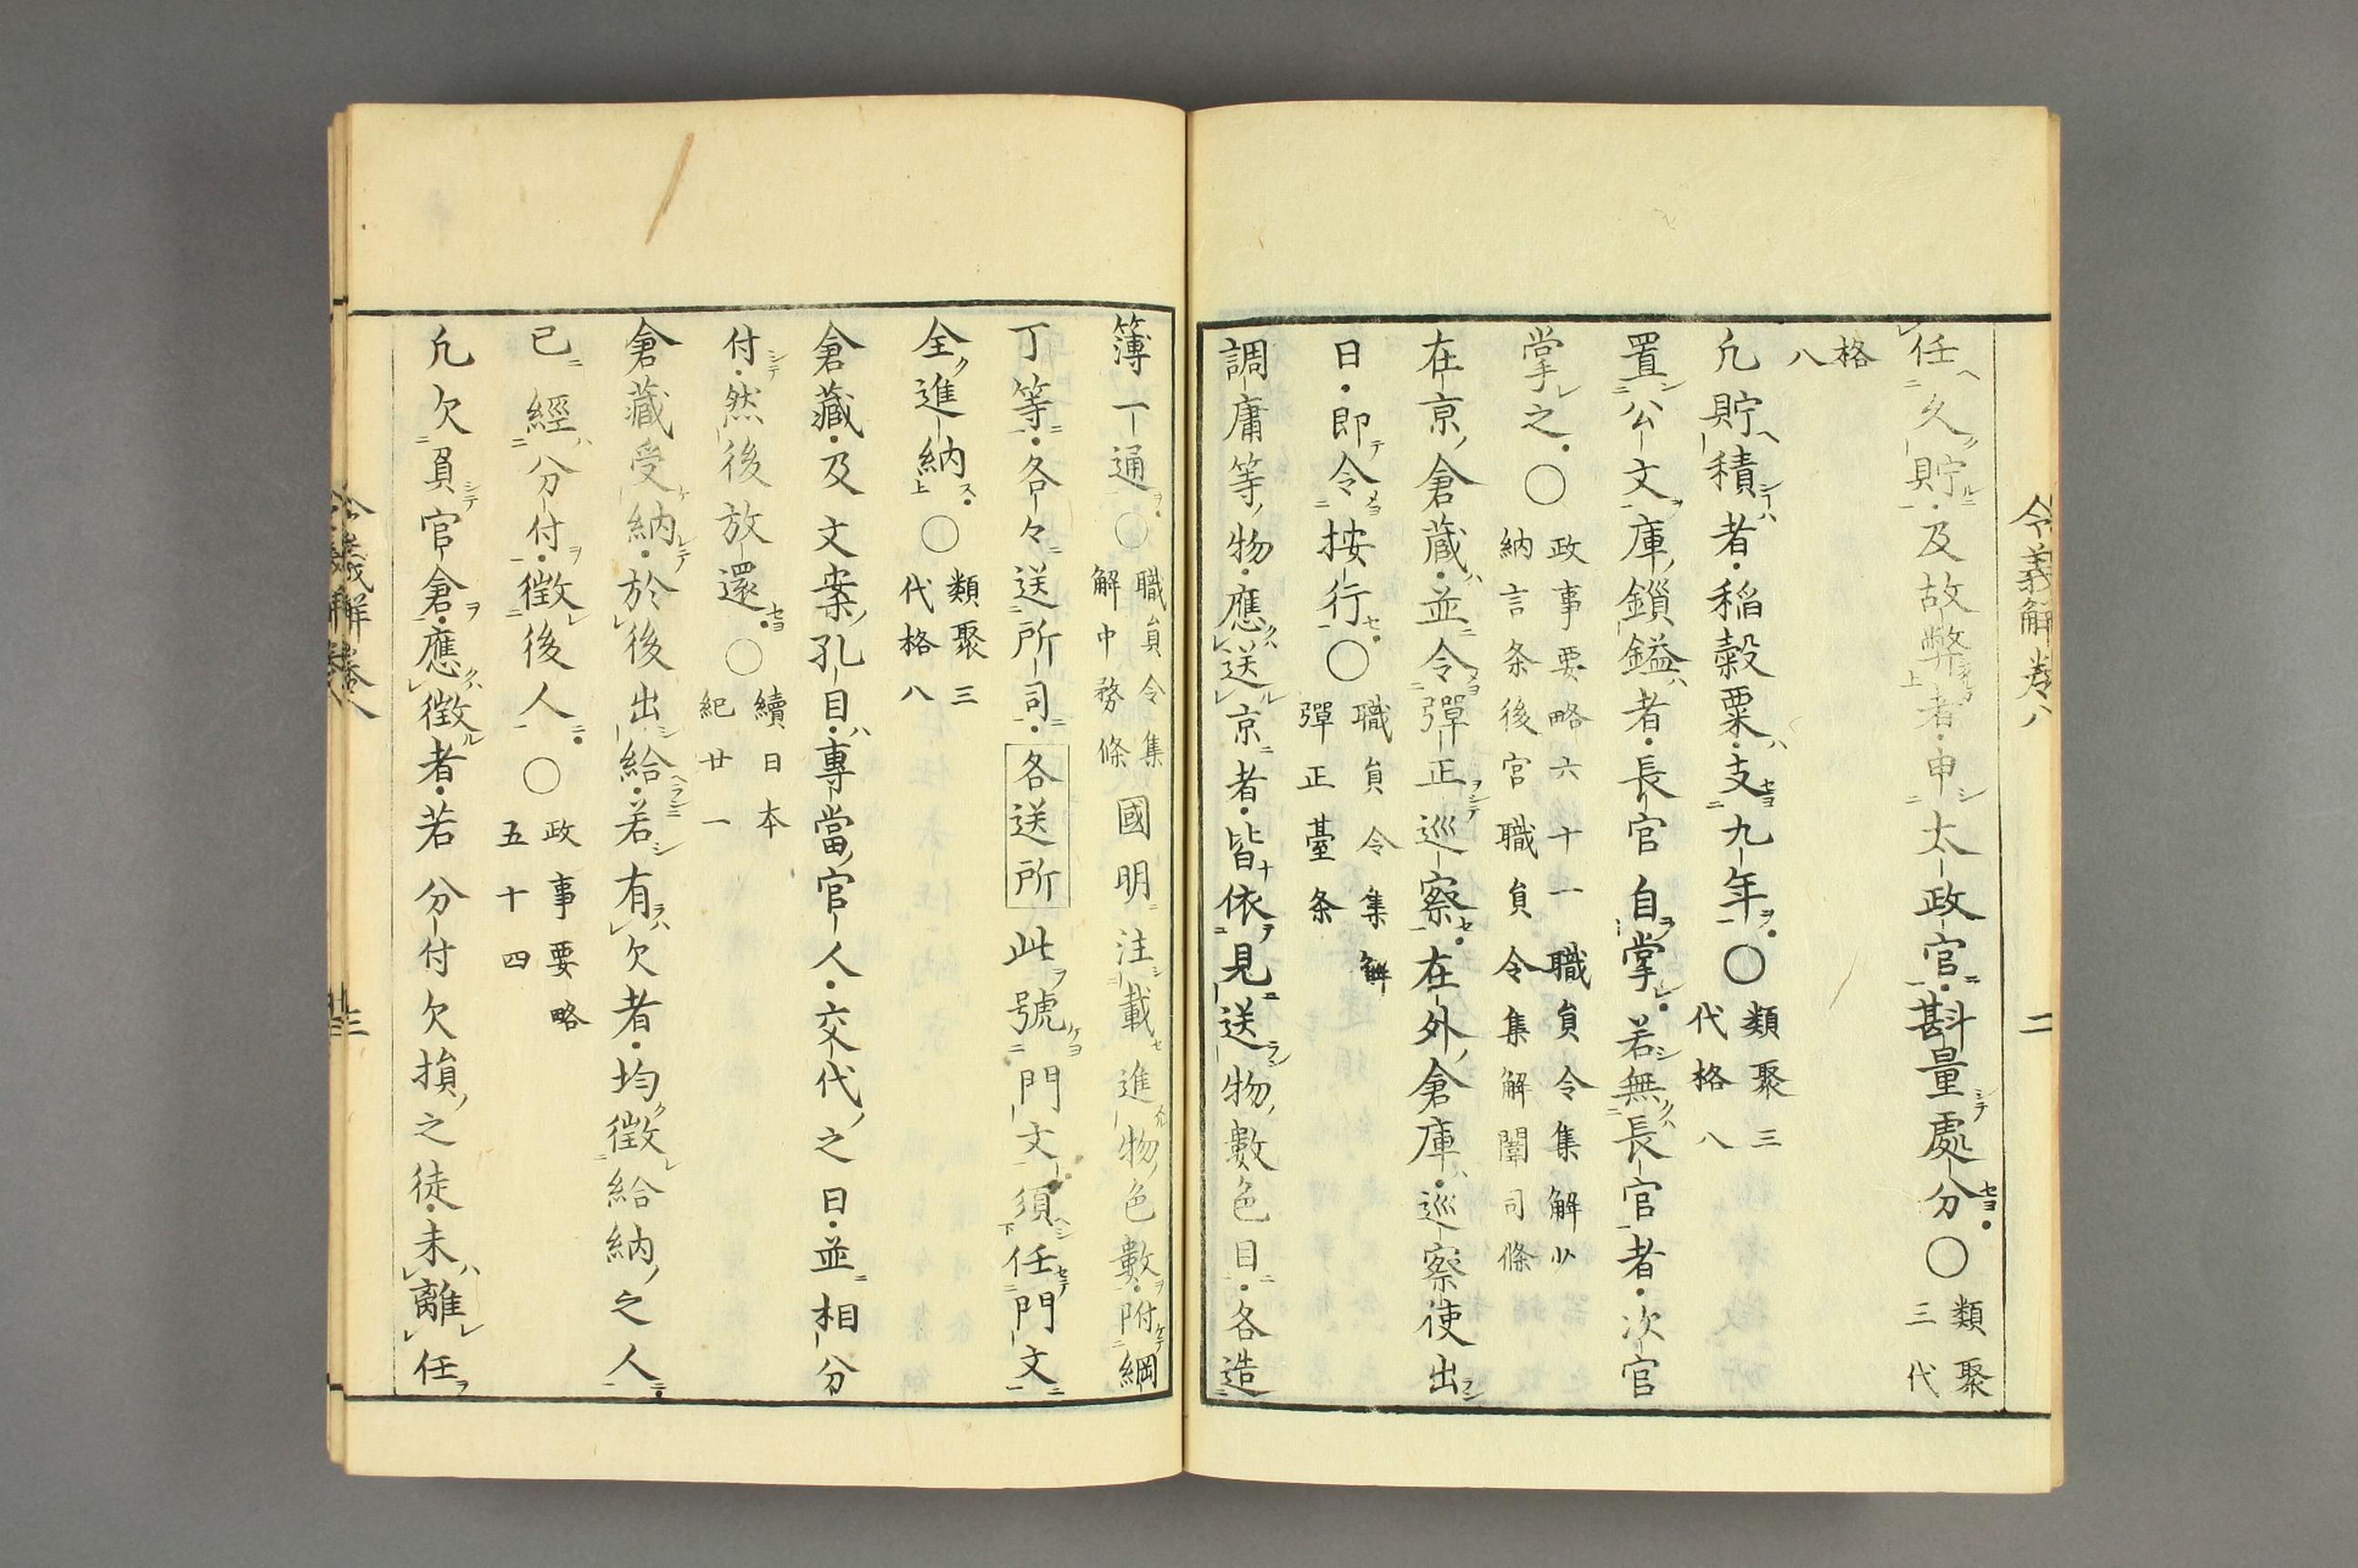 任久貯及故弊者申太政官斟量處分○類聚三代
格八
凢貯積者稲穀粟支九年○類聚三代格八
置公文庫鎖鎰者長官自掌若無長官者次官
掌之○政事要略六十一職員令集解少納言条後宮職員令集解闈司條
在京倉蔵並令彈正巡察在外倉庫巡察使出
日即令按行○職員令集解彈正臺条
調庸等物應送京者皆依見送物數色目各造
令義解卷八
二
簿一通○職員令集解中務條國明注載進物色數附綱
丁等各々送所司各送所此號門文須任門文
全進納○類聚三代格八
倉藏及文案孔目專當官人交代之日並相分
付然後放還○續日本紀廿一
倉藏受納於後出給若有欠者均徴給納之人
已經分付徴後人○政事要略五十四
凢欠負官倉應徴者若分付欠損之徒未離任